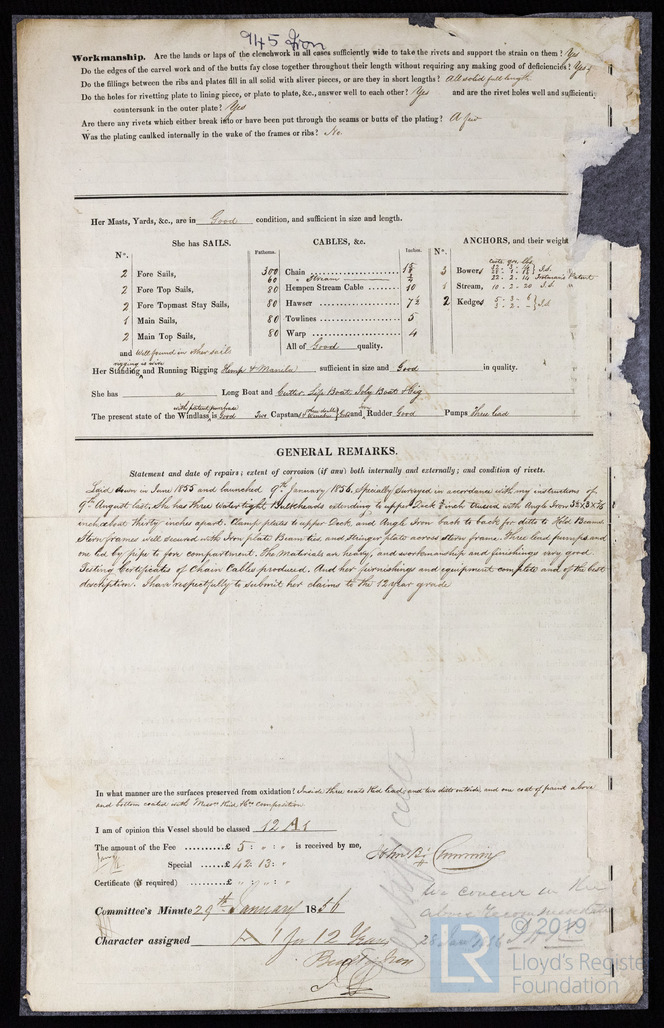 945 Iron
Workmanship. Are the lands or laps of the clenchwork in all cases sufficiently wide to take the rivets and support the strain on them? Yes
Do the edges of the carvel work and of the butts fay close together throughout their length without requiring any making good of deficiencies? Yes
Do the fillings between the ribs and plates fill in all solid with sliver pieces, or are they in short lengths? All solid full length
Do the holes for rivetting plate to lining piece, or plate to plate, &c., answer well to each other? Yes and are the rivet holes well and sufficiently
countersunk in the outer plate? Yes
Are there any rivets which either break into or have been put through the seams or butts of the plating? A few
Was the plating caulked internally in the wake of the frames or ribs? No.
Her Masts, Yards, &c., are in Good condition, and sufficient in size and length.
She has SAILS. CABLES, &c. ANCHORS, and their weight
No. Fathoms. Inches. No.
2 Fore Sails, 300 Chain 3 Bowers
60 " Stream 22 . 2 . 14 Trotman's Patent
2 Fore Top Sails, 80 Hempen Stream Cable 10 1 Stream, 10 . 2 . 20
2 Fore Topmast Stay Sails, 80 Hawser 7½ 2 Kedges
1 Main Sails, 80 Towlines 5
2 Main Top Sails, 80 Warp 4
and Well found in other sails All of Good quality.
rigging is wire
Her Standing and Running Rigging Hemp & Manila sufficient in size and Good in quality.
She has a Long Boat and Cutter, Life Boat, Joly Boat & Gig
with patent purchase
The present state of the Windlass is Good Two Capstan and Rudder Good Pumps Three lead
GENERAL REMARKS.
Statement and date of repairs; extent of corrosion (if any) both internally and externally; and condition of rivets.
Laid down in June 1855 and launched 9th January 1856. Specially Surveyed in accordance with my instructions of
9th August last. She has three Water tight Bulkheads extending to upper Deck inch trussed with Angle Iron
inch about thirty inches apart. Clamp plates to upper Deck, and Angle Iron back to back for ditto to Hold Beams
Stern frames well secured with Iron plate Beam ties and Stringer plate across stern frame. Three lead pumps and
one led by pipe to fore compartment. The Materials are heavy, and workmanship and finishings very good
Testing Certificates of Chain Cables produced. And her furnishings and equipment complete and of the best
description. I have respectfully to submit her claims to the 12 year grade
In what manner are the surfaces preserved from oxidation? Inside three coats Red lead, and two ditto outside, and one coat of paint above
and bottom coated with composition
I am of opinion this Vessel should be classed 12 A1
The amount of the Fee .......... £ 5 : " : " is received by me,
Special ....... £ 42 : 13 : "
Certificate (if required) ....... £ " : " : "
We concur in the
above recommendation
Committee's Minute 29th January 1856
28 Jan 1856
Character assigned A 1 for 12 Years
© 2019
LR
Lloyd's Register
Foundation